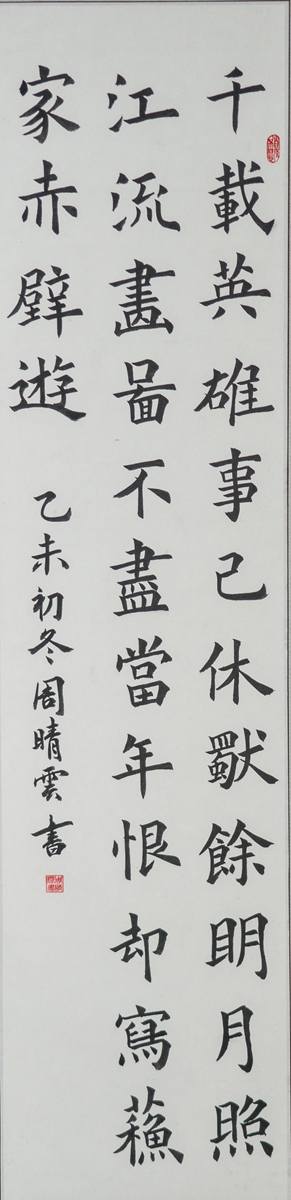 千載英雄事已休獸餘明月照
江流畵啚不盡當年恨却寫蘓
家赤壁遊
乙未初冬周晴雲書